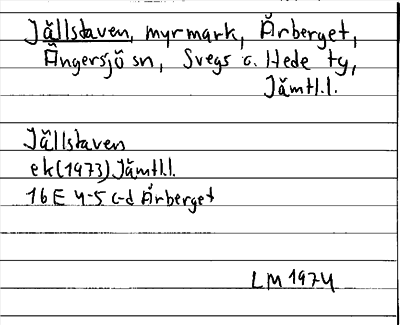 Jällstaven, myrmark, Årberget,
Ängersjö sn, Svegs o. Hede ty,
Jämtl.l.
Jällstaven
ek (1973) Jämtl.l.
16E 4-5 c-d Årberget
LM 1974